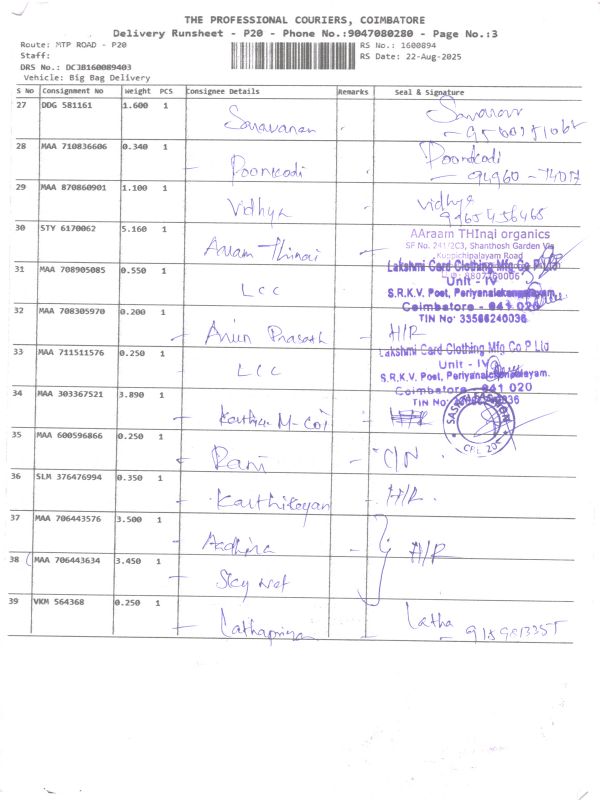 THE PROFESSIONAL COURIERS, COIMBATORE
Delivery Runsheet - P20 - Phone No.:9047080280 - Page No.:3
Route: MTP ROAD - P20
RS No.: 1600894
Staff:
RS Date: 22-Aug-2025
DRS No.: DCJB160089403
Vehicle: Big Bag Delivery
S No Consignment No Weight PCS Consignee Details Remarks Seal & Signature
27 DDG 581161 1.600 1 Saravanan
28 MAA 710836606 0.340 1 Poonkodi Poonkodi
- 94960-74017
29 MAA 870860901 1.100 1 Vidhya Vidhya
9965456465
30 STY 6170062 5.160 1 Aaram Thinai AAraam THInai organics
SF No. 241/2C3, Shanthosh Garden Via
Kuppichipalayam Road
31 MAA 708905085 0.550 1 LCC Lakshmi Card Clothing Mfg Co P Ltd
Unit - IV
S.R.K.V. Post, Periyanaickenpalayam,
Coimbatore - 641 020
TIN No: 33566240036
32 MAA 708305970 0.200 1 Arun Prasath - H/R
33 MAA 711511576 0.250 1 LCC Lakshmi Card Clothing Mfg Co P Ltd
Unit - IV
S.R.K.V. Post, Periyanaickenpalayam.
Coimbatore - 641 020
TIN No
34 MAA 303367521 3.890 1
35 MAA 600596866 0.250 1 Rani - C/N
36 SLM 376476994 0.350 1 Karthikeyan - H/R
37 MAA 706443576 3.500 1 H/R
38 MAA 706443634 3.450 1 Sky net
39 VKM 564368 0.250 1 Lathapriya Latha